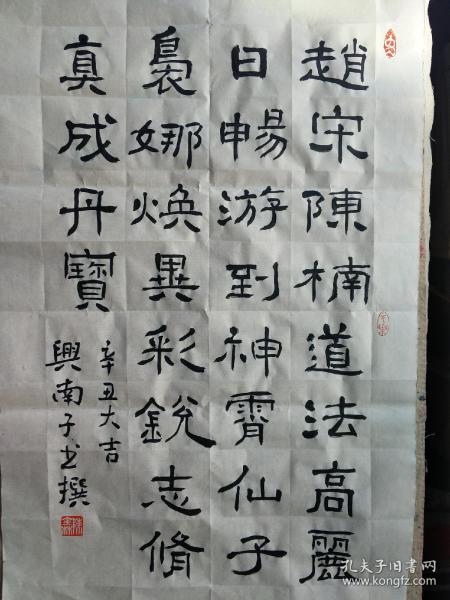 趙宋陳楠道法高麗
日暢游到神霄仙子
裊娜焕異彩銳志脩
真成丹寶
辛丑大吉
興南子书撰
孔夫子旧书网
www.kongfz.com